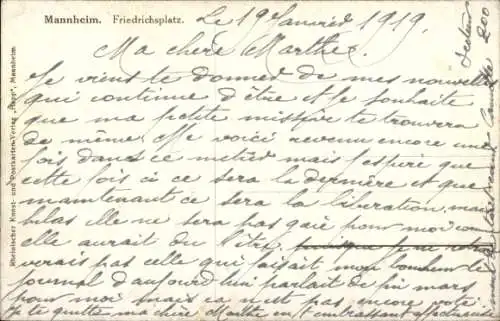 Mannheim. Friedrichsplatz.
Le 19 Janvier 1919.
Ma chère Marthe.
Je viens te donner de mes nouvelles
qui continue d'être et je souhaite
que ma petite missive te trouvera
de même. Me voici revenu encore une
fois dans ce métier mais j'espère que
cette fois ci ce sera la dernière et que
maintenant ce sera la libération, mais
hélas elle ne sera pas gaie pour moi com
elle aurait du l'être.
verais pas celle qui faisait mon bonheur le
journal d'aujourd'hui parlait de fin mars
pour moi mais ca n'est pas encore voté.
Je te quitte ma chère Marthe en t'embrassant affectueusement
Rheinischer Kunst- und Postkarten-Verlag, Mannheim.
Secteur
200